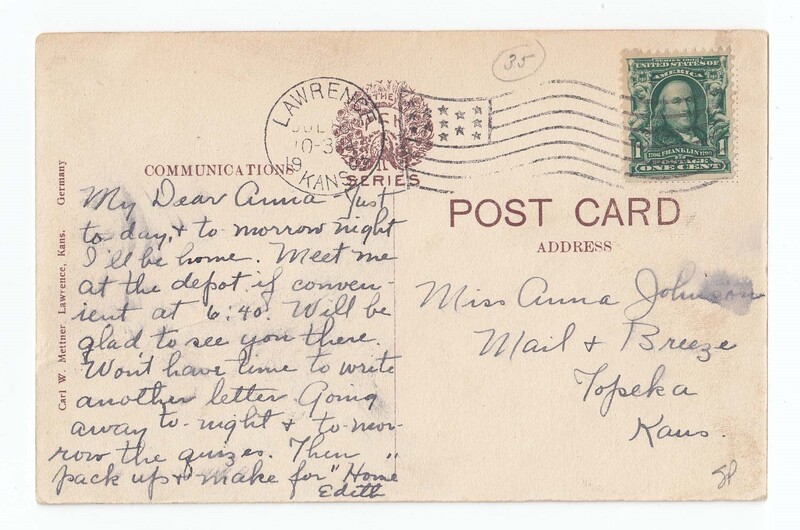 35
LAWRENCE
KANS.
THE
SERIES
SERIES 1902
UNITED STATES OF
AMERICA
1706 FRANKLIN 1790
1 POSTAGE 1
ONE CENT
COMMUNICATIONS
POST CARD
ADDRESS
Carl W. Mettner Lawrence, Kans. Germany
My Dear Anna - Just
to day, & to morrow night
I'll be home. Meet me
at the depot if conven-
ient at 6:40. Will be
glad to see you there.
Won't have time to write
another letter. Going
away to-night & to-mor-
row the quizes. Then
pack up & make for "Home"
Edith
Miss Anna Johnson
Mail & Breeze
Topeka
Kans.